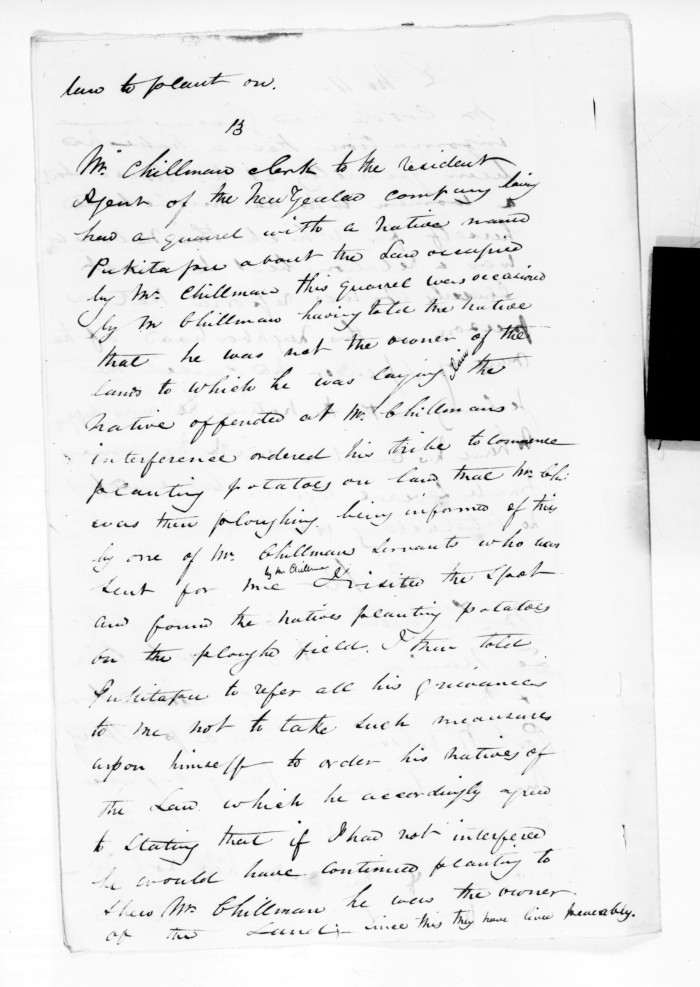 law to plant on.
13
Mr. Chillman clerk to the resident
Agent of the New Zealad company having
had a quarrel with a native named
Pukitapu about the Law occupied
by Mr. Chillman this quarrel was occasiond
by Mr Chillman having told the native
that he was not the owner of the
lands to which he was laying claim the
native offended at Mr. Chillmans
interference ordered his tribe to commence
planting potatoes on land that Mr. Chi:
was then ploughing. being informed of this
by one of Mr. Chillmans servants who was
sent for me by Mr Chillman I visited the spot
and found the natives planting potatoes
on the ploughd field. I then told
Pukitapu to refer all his grievances
to me not to take such meansures
uspon himselff to order his natives of
the Law which he accordingly agreed
to stating that if I had not interfered
he would have continued planting to
shew Mr. Chillman he was the owner
of the Land; since this they have lived peaceably.